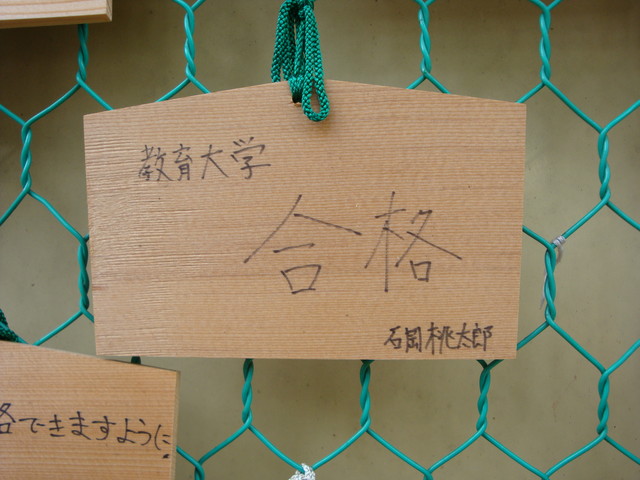 教育大学
合格
石岡桃太郎
格できますように